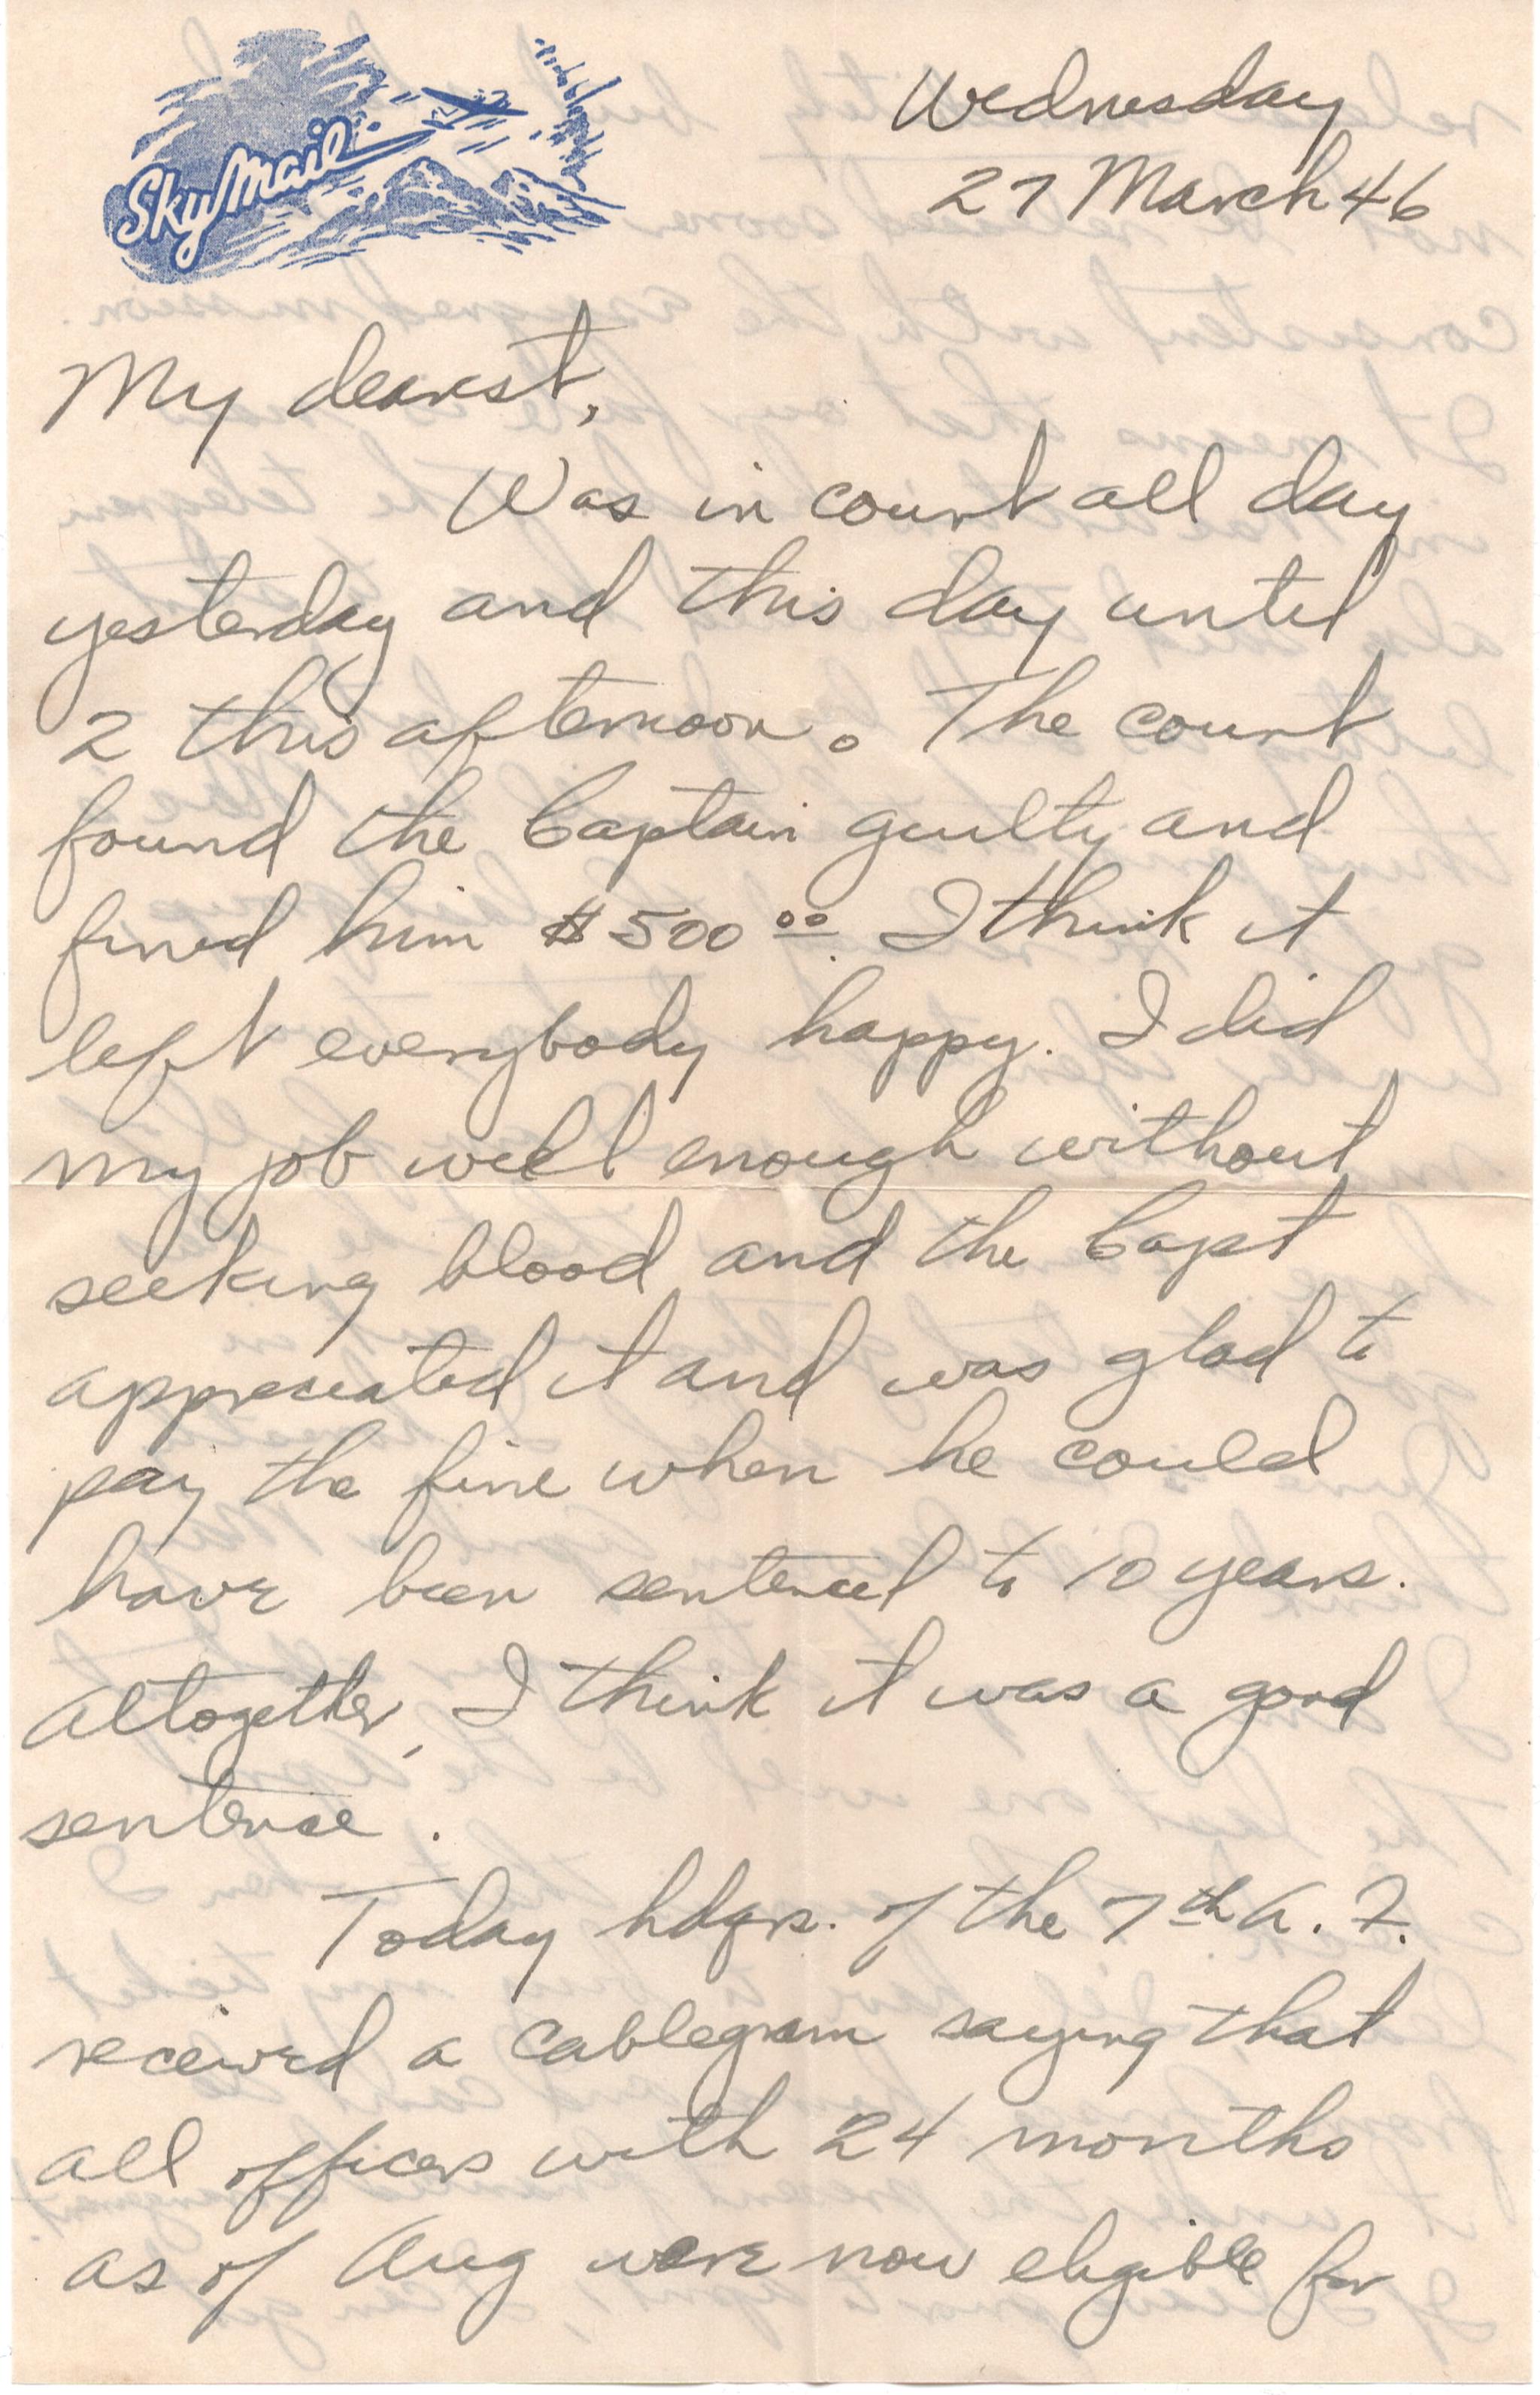 Sky Mail
Wednesday
27 March 46
My dearest,
Was in court all day
yesterday and this day until
2 this afternoon. The court
found the Captain guilty and
fined him $500.00 I think it
left everybody happy. I did
my job well enough without
seeking blood and the Capt
appreciated it and was glad to
pay the fine when he could
have been sentenced to 10 years.
Altogether, I think it was a good
sentence.
Today hdqrs. of the 7th A. F.
received a cablegram saying that
all officers with 24 months
as of Aug were now eligible for